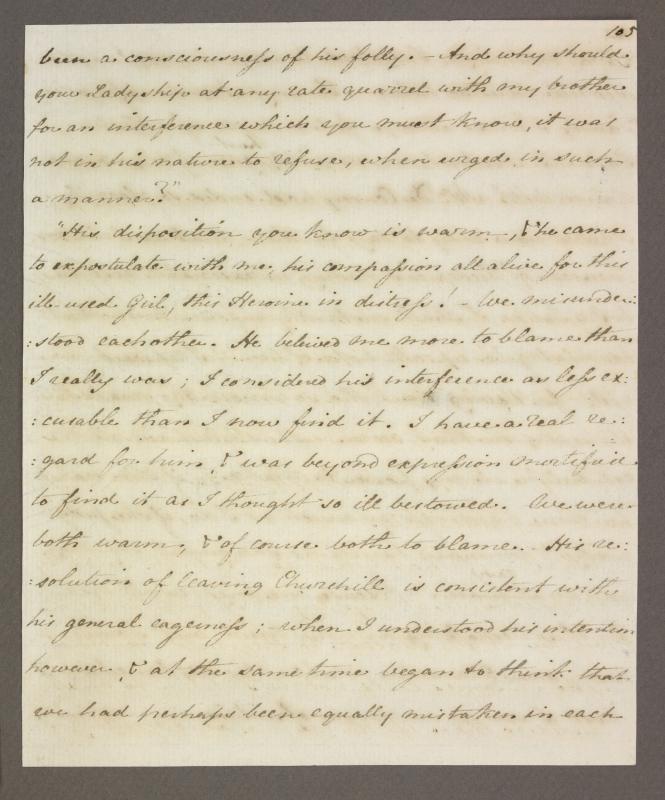 105
been a consciousness of his folly. – And why should
your Ladyship at any rate quarrel with my brother
for an interference which you must know, it was
not in his nature to refuse, when urged in such
a manner?"
"His disposition you know is warm, & he came
to expostulate with me, his compassion all alive for this
ill-used Girl, this Heroine in distress! – We misunder:
:stood each other. He beleived me more to blame than
I really was; I considered his interference as less ex:
:cusable than I now find it. I have a real re:
:gard for him, & was beyond expression mortified
to find it as I thought so ill bestowed. We were
both warm, & of course both to blame. His re:
:solution of leaving Churchill is consistent with
his general eagerness; when I understood his intention
however, & at the same time began to think that
we had perhaps been equally mistaken in each